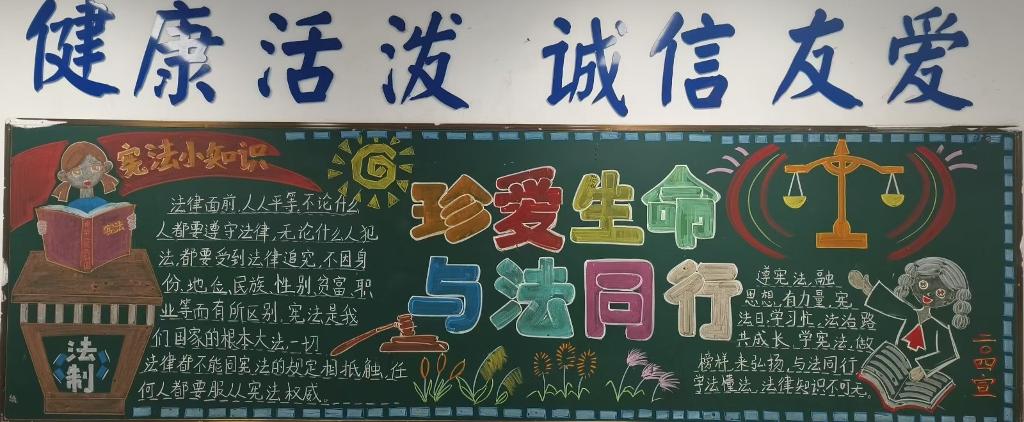 健康活泼 诚信友爱
宪法小知识
宪法
法律面前,人人平等,不论什么
人都要遵守法律,无论什么人犯
法,都要受到法律追究,不因身
份、地位、民族、性别、贫富、职
业等而有所区别。宪法是我
们国家的根本大法,一切
法律都不能同宪法的规定相抵触,任
何人都要服从宪法权威。
法制
珍爱生命
与法同行
遵宪法,融
思想,有力量,宪
法日,学习忙,法治路
共成长,学宪法,做
榜样,来弘扬,与法同行,
学法懂法,法律知识不可无。
二〇四宣